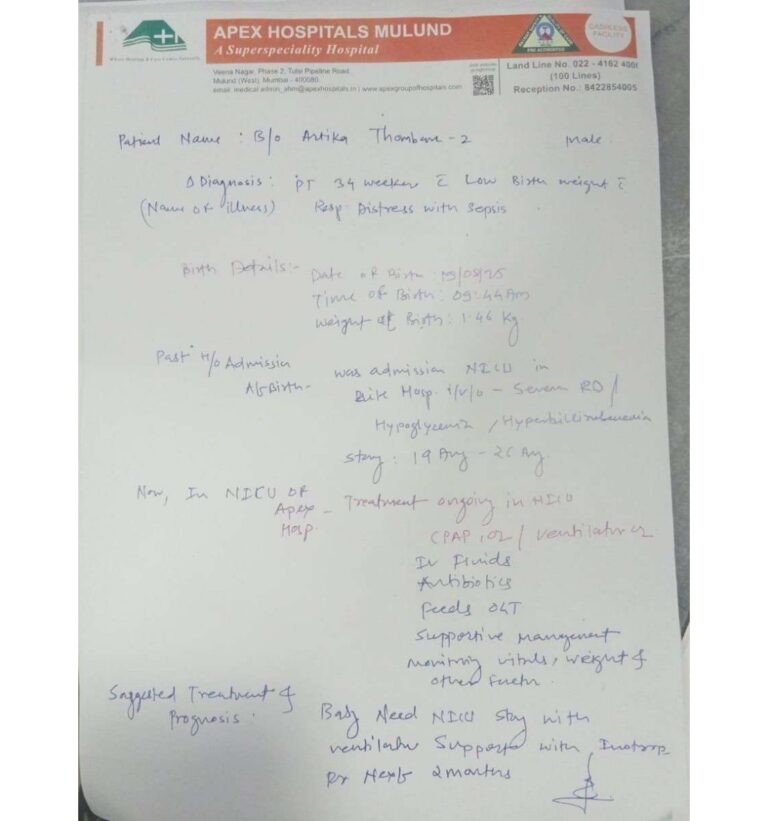 APEX HOSPITALS MULUND
A Superspeciality Hospital
Veena Nagar, Phase 2, Tulsi Pipeline Road,
Mulund (West), Mumbai - 400080.
email: medical.admin_ahm@apexhospitals.in | www.apexgroupofhospitals.com
CASHLESS
FACILITY
Land Line No. 022 - 4162 400
(100 Lines)
Reception No.: 8422854005
Patient Name : B/o Artika Thombare - 2 male.
Δ Diagnosis : PT 34 weeker c̄ Low Birth weight c̄
(Name of illness) Resp. Distress with sepsis
Birth Details:- Date of Birth :
Time of Birth : 09:44 Am
weight of Birth : 1.46 Kg
Past H/o Admission was admission NICU in
Af Birth - Hosp. i/v/o - Severe RD /
Hypoglycemia , Hyperbillirubenemia
stay : 19 Aug - Aug.
Now, In NICU OF
Apex - Treatment ongoing in NICU
Hosp.
CPAP / ventilator
Iv Fluids
Antibiotics
Feeds OGT
Supportive management
monitring vitals, weight &
other
Suggested Treatment &
Prognosis : Baby Need NICU stay with
ventilator Support with Inotrop
Next 2 months